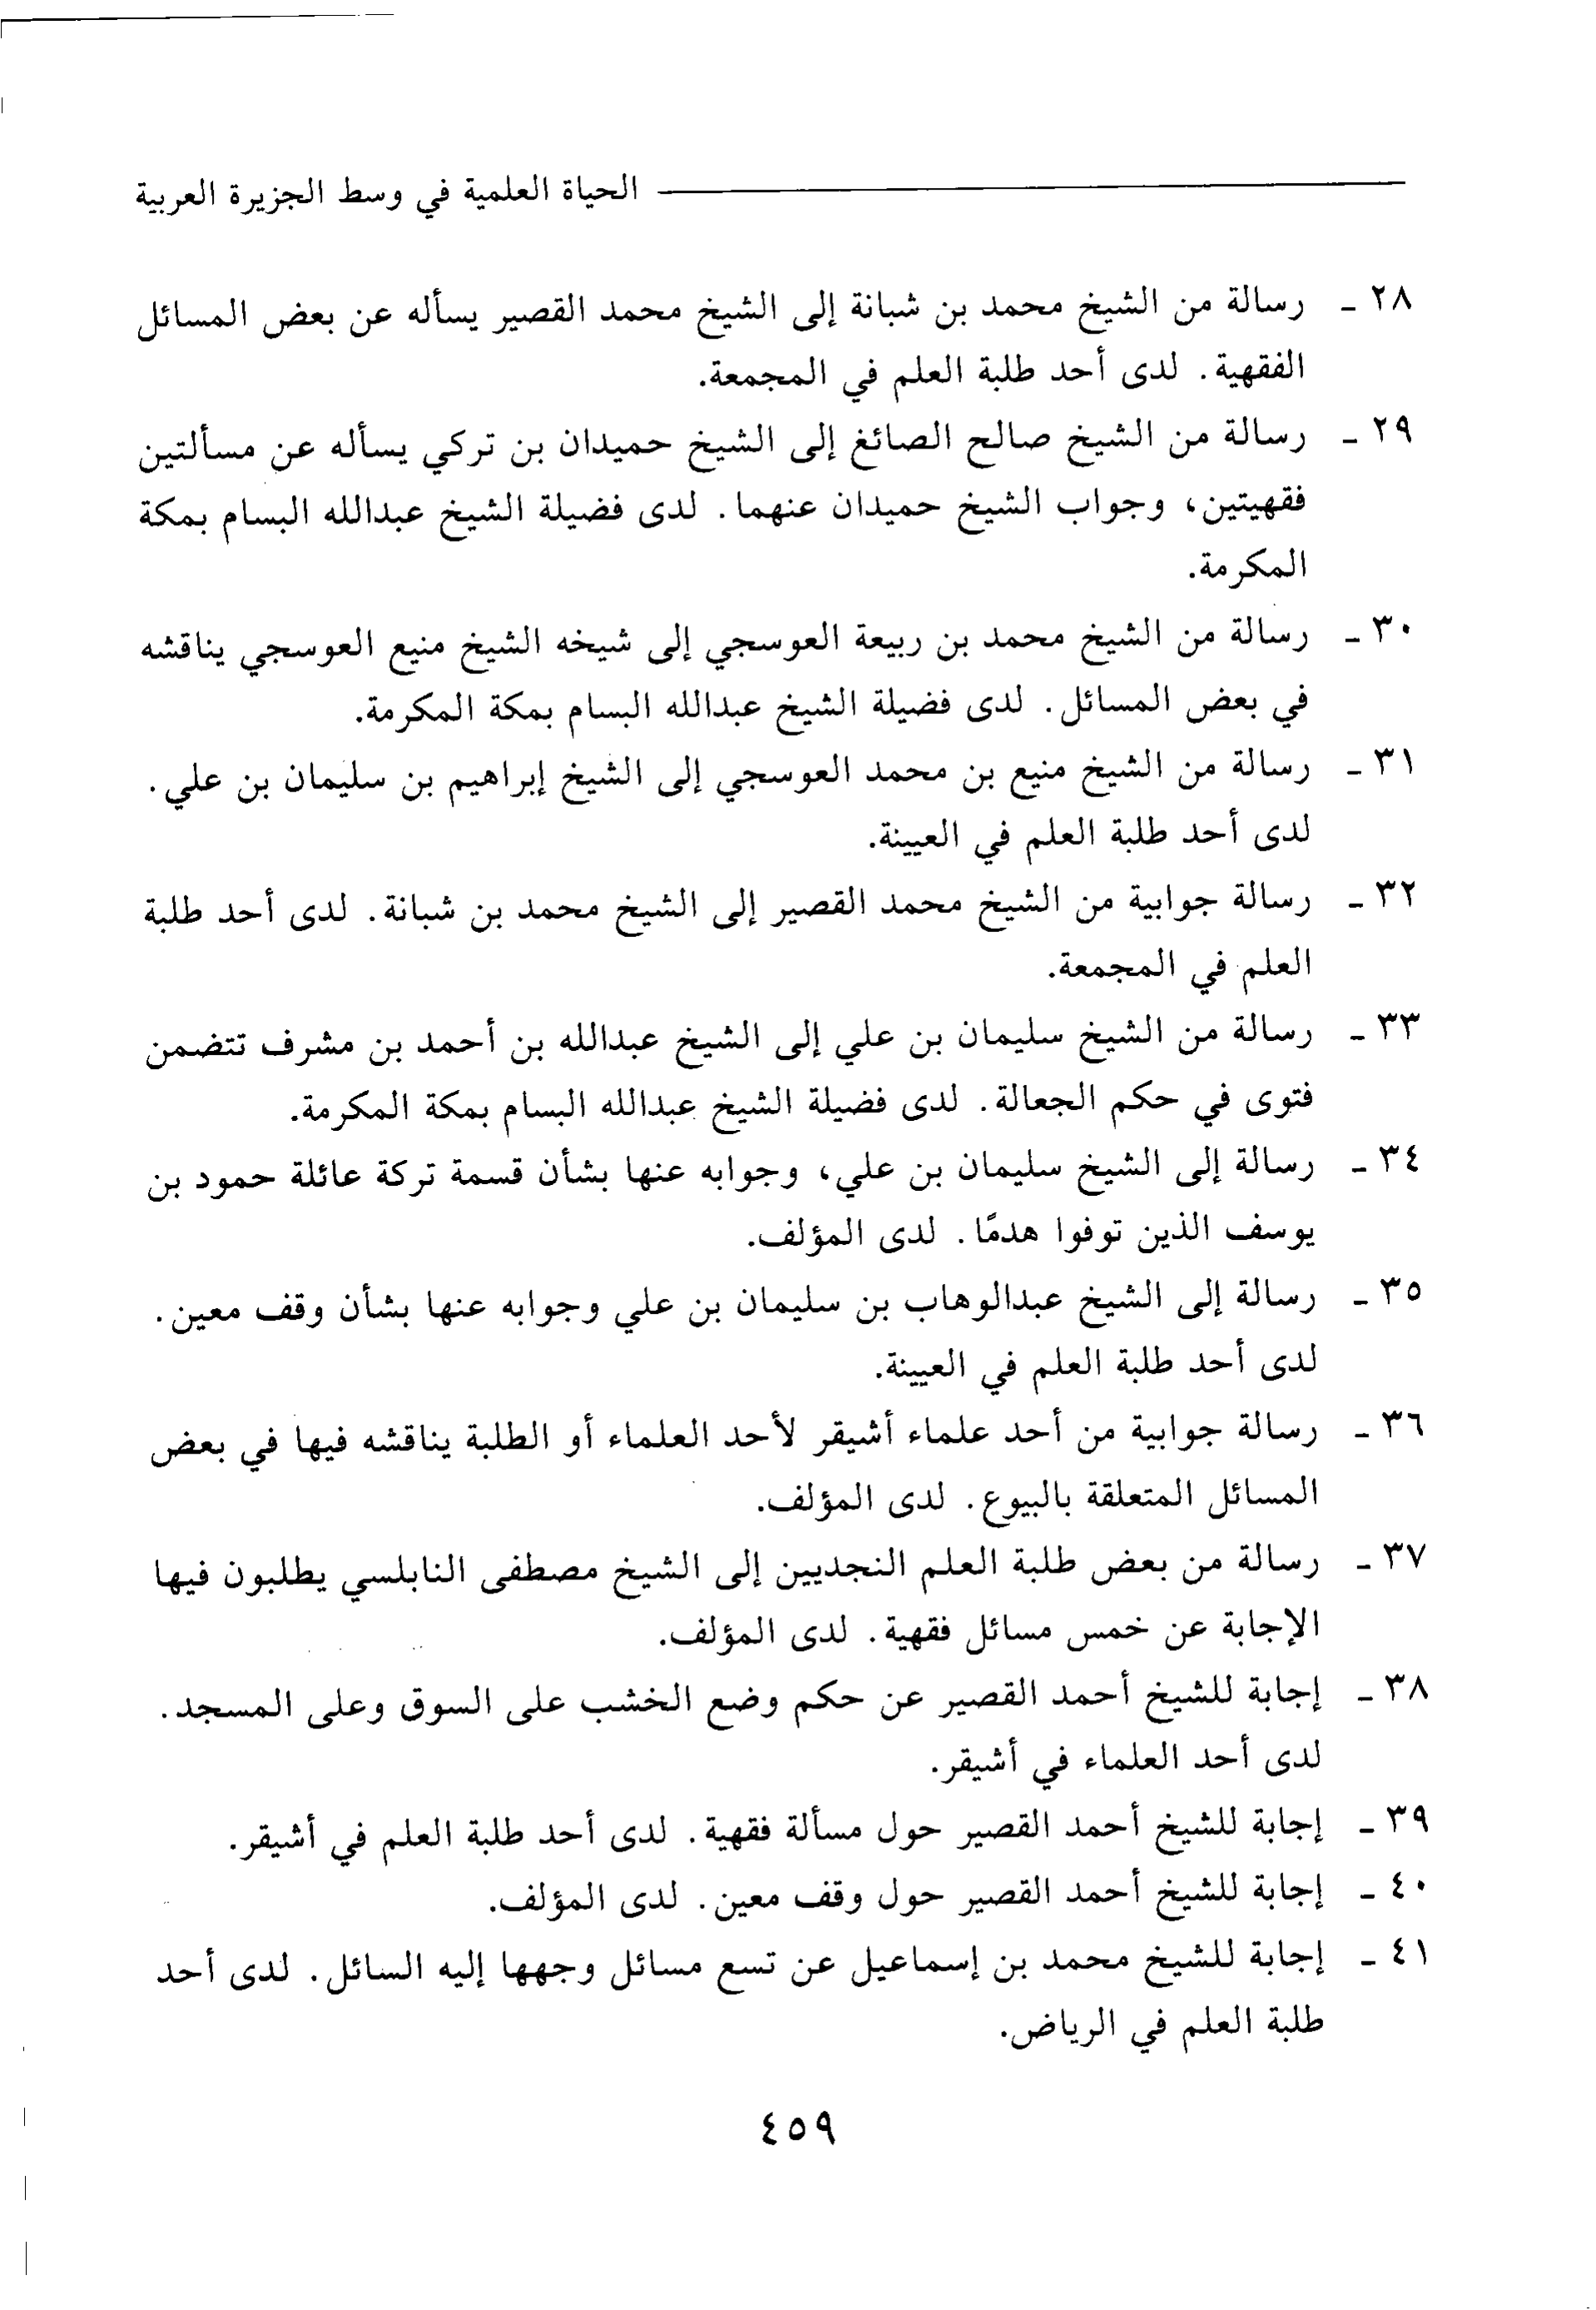 الحياة العلمية في وسط الجزيرة العربية
٢٨ ـ رسالة من الشيخ محمد بن شبانة إلى الشيخ محمد القصير يسأله عن بعض المسائل
الفقهية. لدى أحد طلبة العلم في المجمعة.
٢٩ ـ رسالة من الشيخ صالح الصائغ إلى الشيخ حميدان بن تركي يسأله عن مسألتين
فقهيتين، وجواب الشيخ حميدان عنهما. لدى فضيلة الشيخ عبدالله البسام بمكة
المكرمة.
٣٠ ـ رسالة من الشيخ محمد بن ربيعة العوسجي إلى شيخه الشيخ منيع العوسجي يناقشه
في بعض المسائل. لدى فضيلة الشيخ عبدالله البسام بمكة المكرمة.
٣١ ـ رسالة من الشيخ منيع بن محمد العوسجي إلى الشيخ إبراهيم بن سليمان بن علي.
لدى أحد طلبة العلم في العيينة.
٣٢ ـ رسالة جوابية من الشيخ محمد القصير إلى الشيخ محمد بن شبانة. لدى أحد طلبة
العلم في المجمعة.
٣٣ ـ رسالة من الشيخ سليمان بن علي إلى الشيخ عبدالله بن أحمد بن مشرف تتضمن
فتوى في حكم الجعالة. لدى فضيلة الشيخ عبدالله البسام بمكة المكرمة.
٣٤ ـ رسالة إلى الشيخ سليمان بن علي، وجوابه عنها بشأن قسمة تركة عائلة حمود بن
يوسف الذين توفوا هدمًا. لدى المؤلف.
٣٥ ـ رسالة إلى الشيخ عبدالوهاب بن سليمان بن علي وجوابه عنها بشأن وقف معين.
لدى أحد طلبة العلم في العيينة.
٣٦ ـ رسالة جوابية من أحد علماء أشيقر لأحد العلماء أو الطلبة يناقشه فيها في بعض
المسائل المتعلقة بالبيوع. لدى المؤلف.
٣٧ ـ رسالة من بعض طلبة العلم النجديين إلى الشيخ مصطفى النابلسي يطلبون فيها
الإجابة عن خمس مسائل فقهية. لدى المؤلف.
٣٨ ـ إجابة للشيخ أحمد القصير عن حكم وضع الخشب على السوق وعلى المسجد.
لدى أحد العلماء في أشيقر.
٣٩ ـ إجابة للشيخ أحمد القصير حول مسألة فقهية. لدى أحد طلبة العلم في أشيقر.
٤٠ ـ إجابة للشيخ أحمد القصير حول وقف معين. لدى المؤلف.
٤١ ـ إجابة للشيخ محمد بن إسماعيل عن تسع مسائل وجهها إليه السائل. لدى أحد
طلبة العلم في الرياض.
٤٥٩